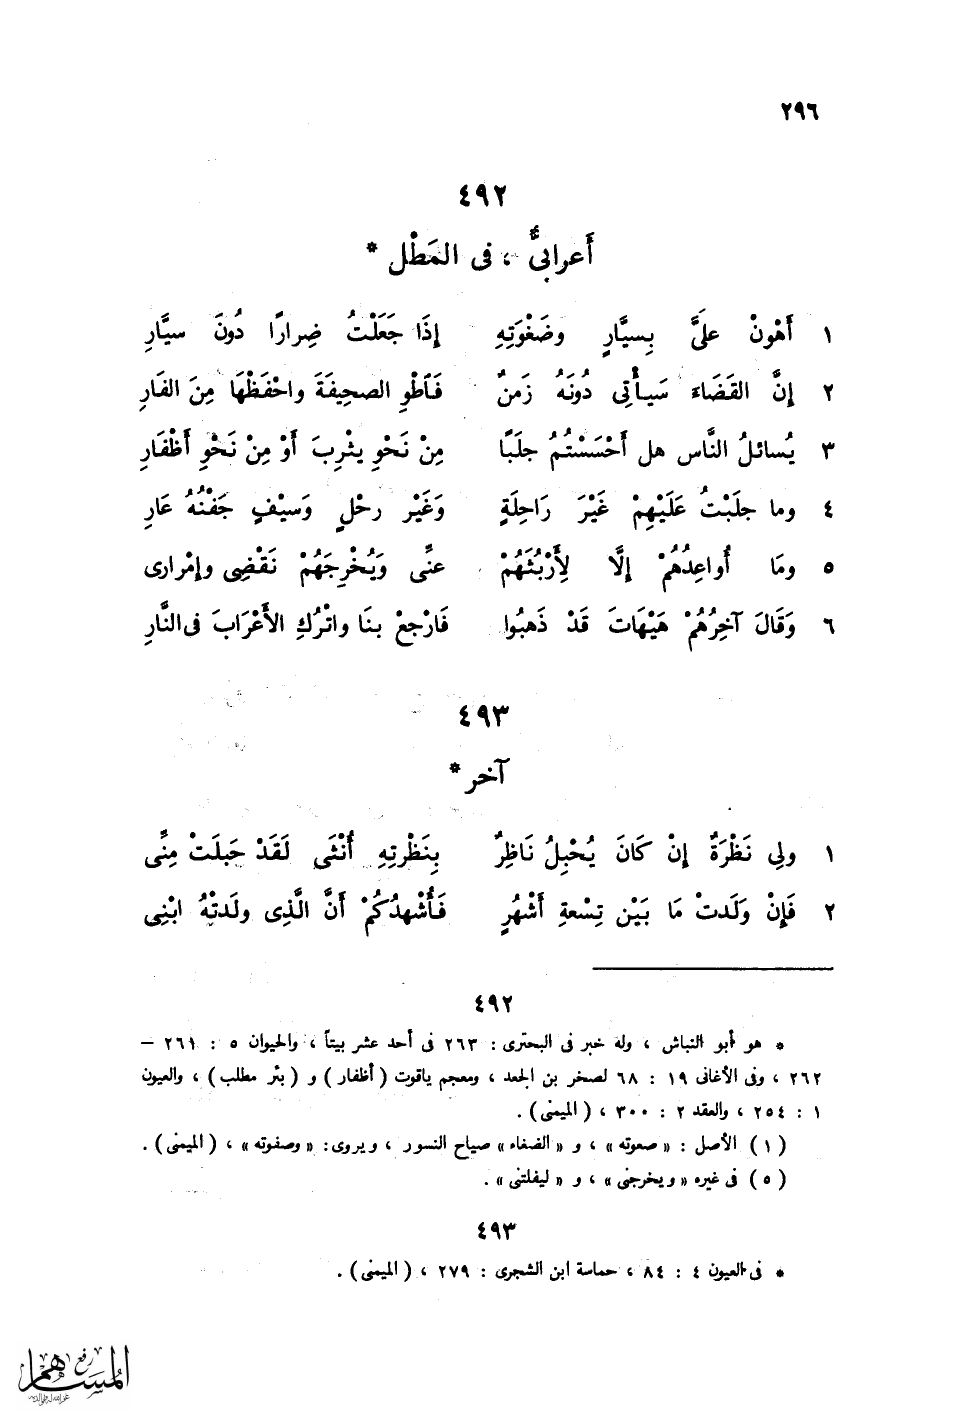 ٢٩٦
٤٩٢
أَعرابىٌّ ، فى المَطْل *
١ أَهْونْ علىَّ بِسيَّارٍ وضَغْوَتِهِ إِذَا جَعَلْتُ ضِرارًا دُونَ سيَّارِ
٢ إنَّ القَضَاءَ سَيأْتِى دُونَهُ زَمنٌ فَاطْوِ الصحِيفَةَ واحْفَظْهَا مِنَ الفَارِ
٣ يُسائلُ النَّاس هل أَحْسَسْتُمُ جلَبًا مِنْ نَحْوِ يثْرِبَ أَوْ مِنْ نَحْوِ أَظْفَارِ
٤ وما جلَبْتُ عَلَيْهِمْ غَيْرَ رَاحِلَةٍ وَغَيْر رحْلٍ وَسيْفٍ جَفْنُهُ عَارِ
٥ ومَا أُواعِدُهُمْ إلَّا لِأَرْبُثَهُمْ عنِّى وَيُخْرِجَهُمْ نَقْضِى وإمْرارى
٦ وَقَالَ آخِرُهُمْ هَيْهَاتَ قَدْ ذَهبُوا فَارْجعْ بنَا واتْرُكِ الأَعْرَابَ فى النَّارِ
٤٩٣
آخر *
١ ولِى نَظْرَةٌ إنْ كَانَ يُحْبِلُ نَاظِرٌ بِنَظْرتِهِ أُنْثَى لَقَدْ حَبلَتْ مِنِّى
٢ فَإنْ وَلَدتْ مَا بَيْن تِسْعةِ أَشْهُرٍ فَأُشْهدُكُمْ أَنَّ الَّذِى ولَدتْهُ ابْنِى
٤٩٢
* هو أبو النباش ، وله خبر فى البحترى : ٢٦٣ فى أحد عشر بيتاً ، والحيوان ٥ : ٢٦١ –
٢٦٢ ، وفى الأغانى ١٩ : ٦٨ لصخر بن الجعد ، ومعجم ياقوت ( أظفار ) و ( بئر مطلب ) ، والعيون
١ : ٢٥٤ ، والعقد ٢ : ٣٠٠ ، ( الميمنى ) .
( ١ ) الأصل : « صعوته » ، و « الضغاء » صياح النسور ، ويروى : « وصفوته » ، ( الميمنى ) .
( ٥ ) فى غيره « ويخرجنى » ، و « ليفلتنى » .
٤٩٣
* فى العيون ٤ : ٨٤ ، حماسة ابن الشجرى : ٢٧٩ ، ( الميمنى ) .